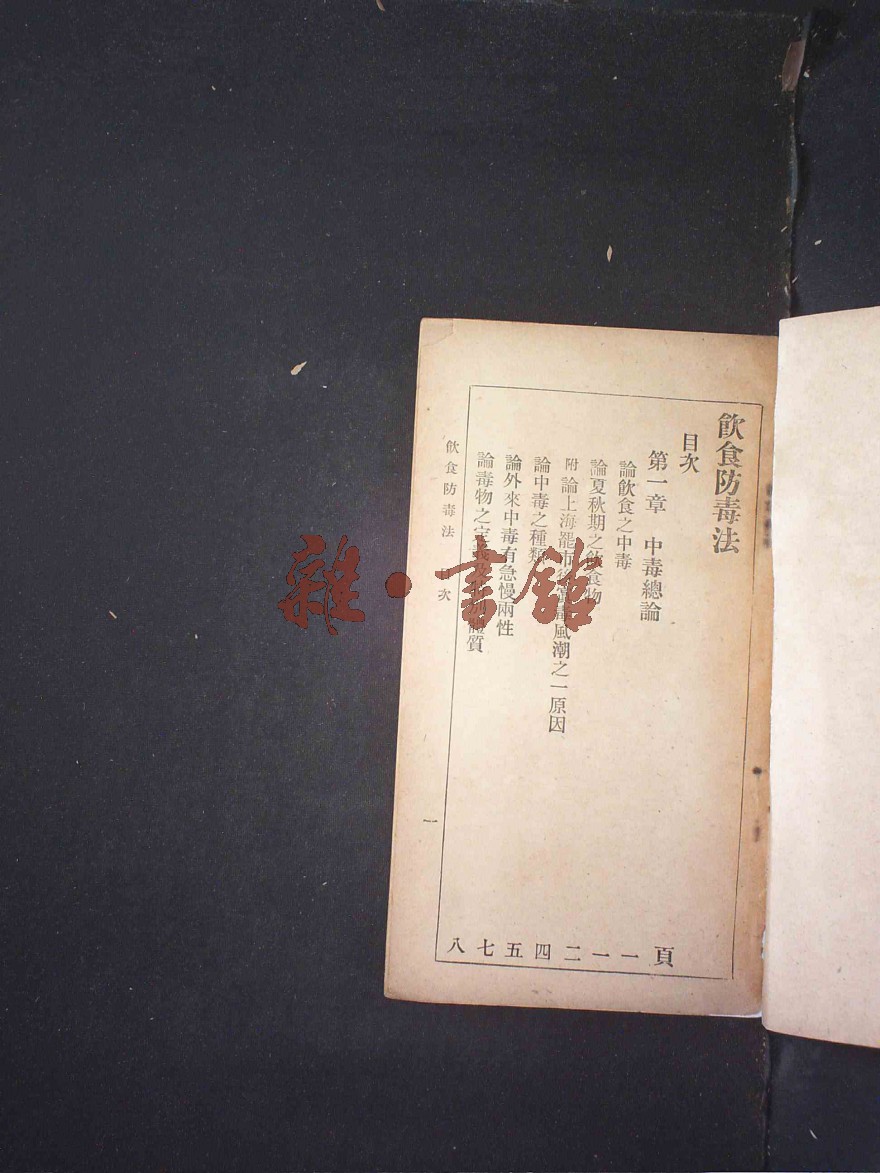 飲食防毒法
目次
第一章 中毒總論 頁
論飲食之中毒 一
論夏秋期之飲食物 一
附 論上海罷市後 風潮之一原因 二
論中毒之種類 四
論外來中毒有急慢兩性 五
論毒物之定義及 體質 七
八
飲食防毒法 目次
一
雜·書館